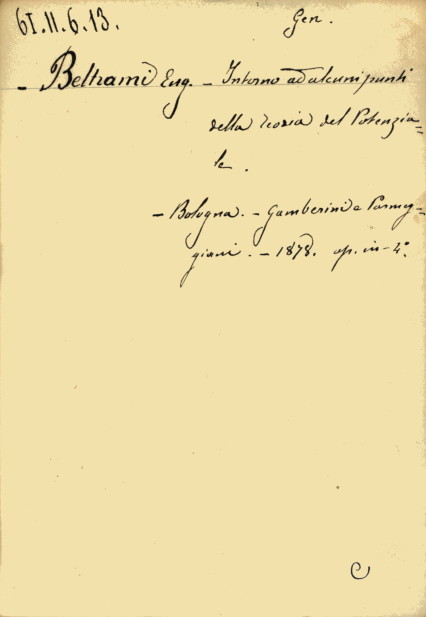 61.11.6.13. Gen.
- Beltrami Eug. - Intorno ad alcuni punti
della teoria del Potenzia=
le.
- Bologna. - Gamberini e Parmeg=
giani. - 1878. op. in-4°
C